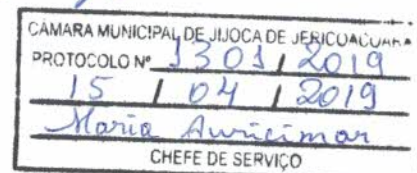 CÂMARA MUNICIPAL DE JIJOCA DE JERICOACOARA
PROTOCOLO Nº 1301 / 2019
15 / 04 / 2019
Maria Auricimar
CHEFE DE SERVIÇO